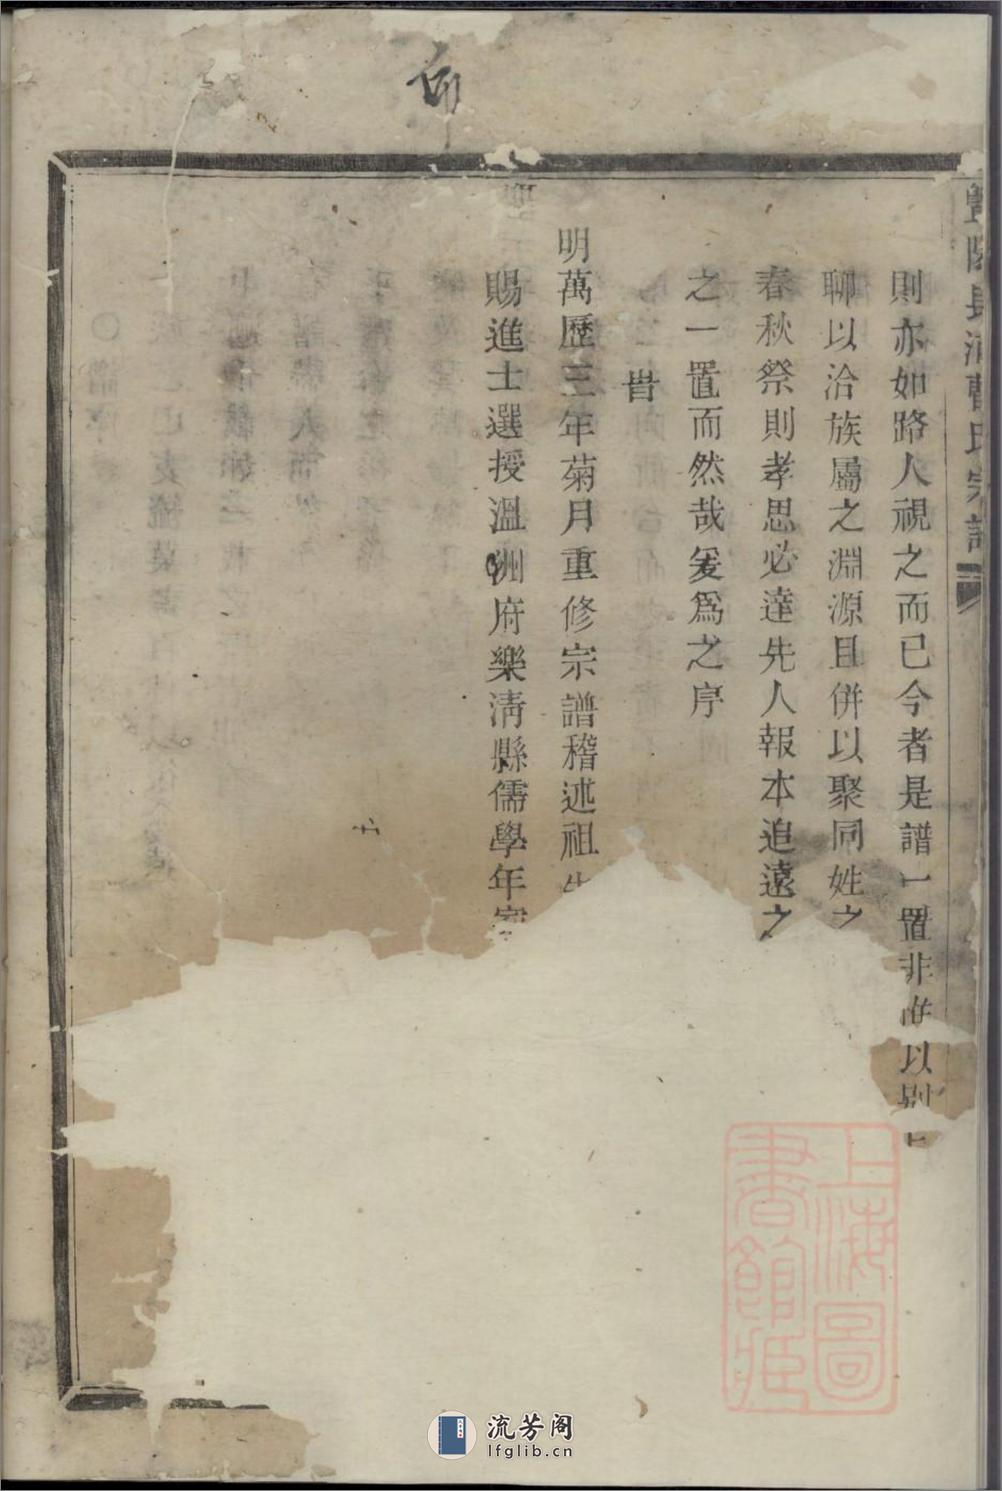 暨陽長浦曹氏宗譜
則亦如路人視之而已今者是譜一置非惟以别
聊以洽族屬之淵源且併以聚同姓之
春秋祭則孝思必達先人報本追遠之
之一置而然哉爰爲之序
旹
明萬歷三年菊月重修宗譜稽述祖
賜進士選授溫洲府樂清縣儒學年
上海圖
書館藏
流芳阁
lfglib.cn